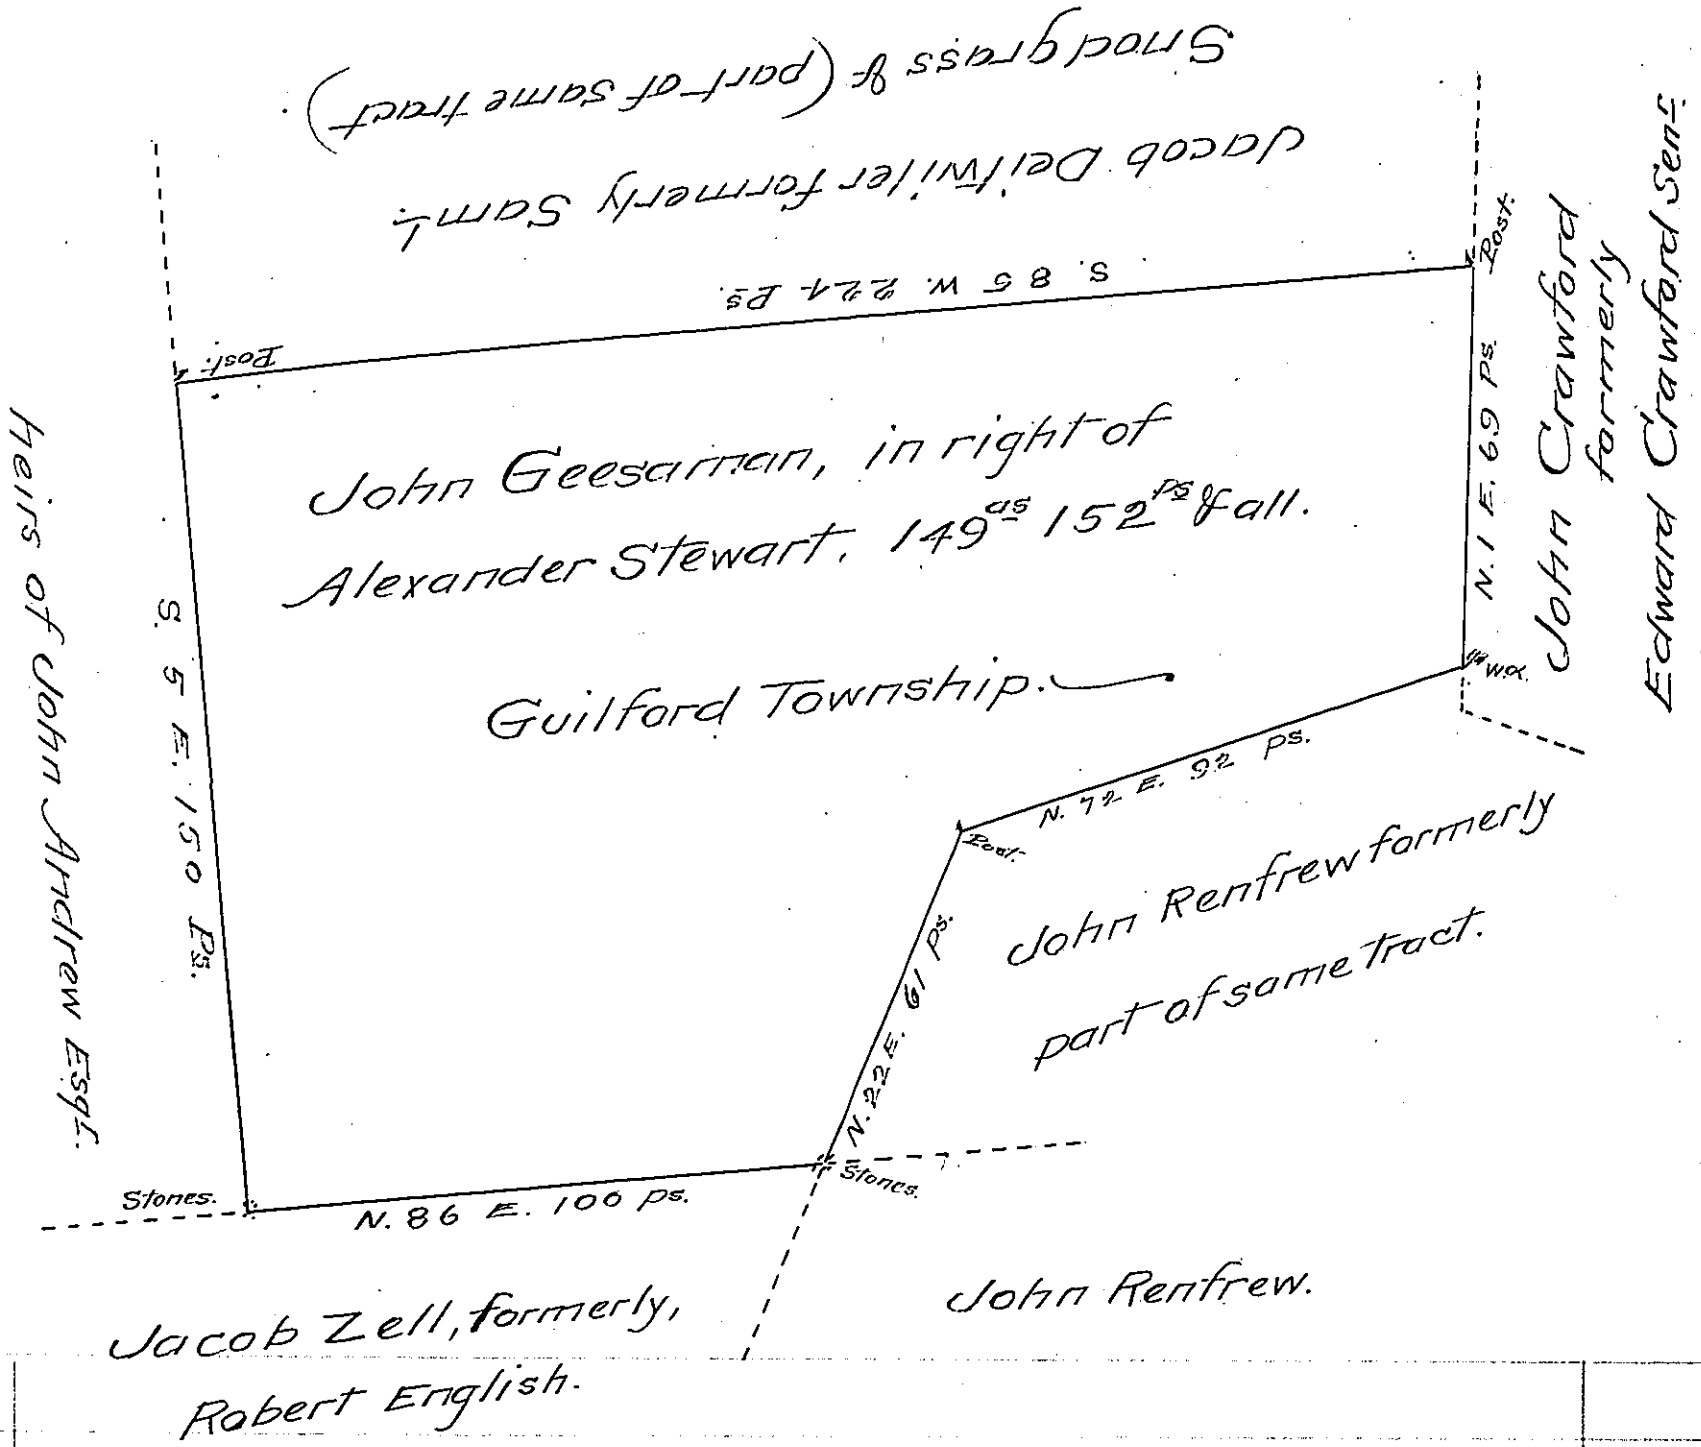 Jacob Deitwiler formerly Saml.
Snodgrass & (part of same tract).
S. 85 W. 224 Ps.
Post.
Post.
John Crawford
formerly
Edward Crawford Senr.
N. 1 E. 69 Ps.
John Geesaman, in right of
Alexander Stewart. 149as 152ps & all.
Guilford Township.
heirs of John Andrew Esqr.
S. 5 E. 150 Ps.
W.O.
N. 72 E. 92 Ps.
Post.
John Renfrew formerly
part of same Tract.
N. 22 E. 61 Ps.
Stones.
Stones.
N. 86 E. 100 Ps.
Jacob Zell, formerly,
Robert English.
John Renfrew.